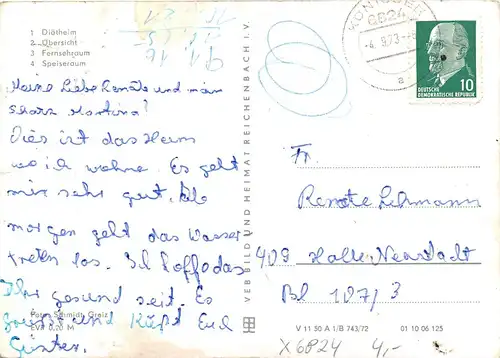 1 Diätheim
2 Übersicht
3 Fernsehraum
4 Speiseraum
Meine Liebe Renate und mein
Dies ist das Heim
wo ich wohne. Es geht
mir sehr gut. Alle
morgen geht das Wasser
treten los. Ich hoffe das
Ihr gesund seit. Es
grüßt und küßt Euch
Günter.
Foto: Schmidt, Greiz
EVP 0,20 M
VEB BILD UND HEIMAT REICHENBACH I. V.
-4. 9.73
a
10
DEUTSCHE
DEMOKRATISCHE REPUBLIK
Fr.
Renate Lehmann
409 Halle Neustadt
Bl 107/3
V 11 50 A 1/B 743/72
01 10 06 125
X6824 4,-